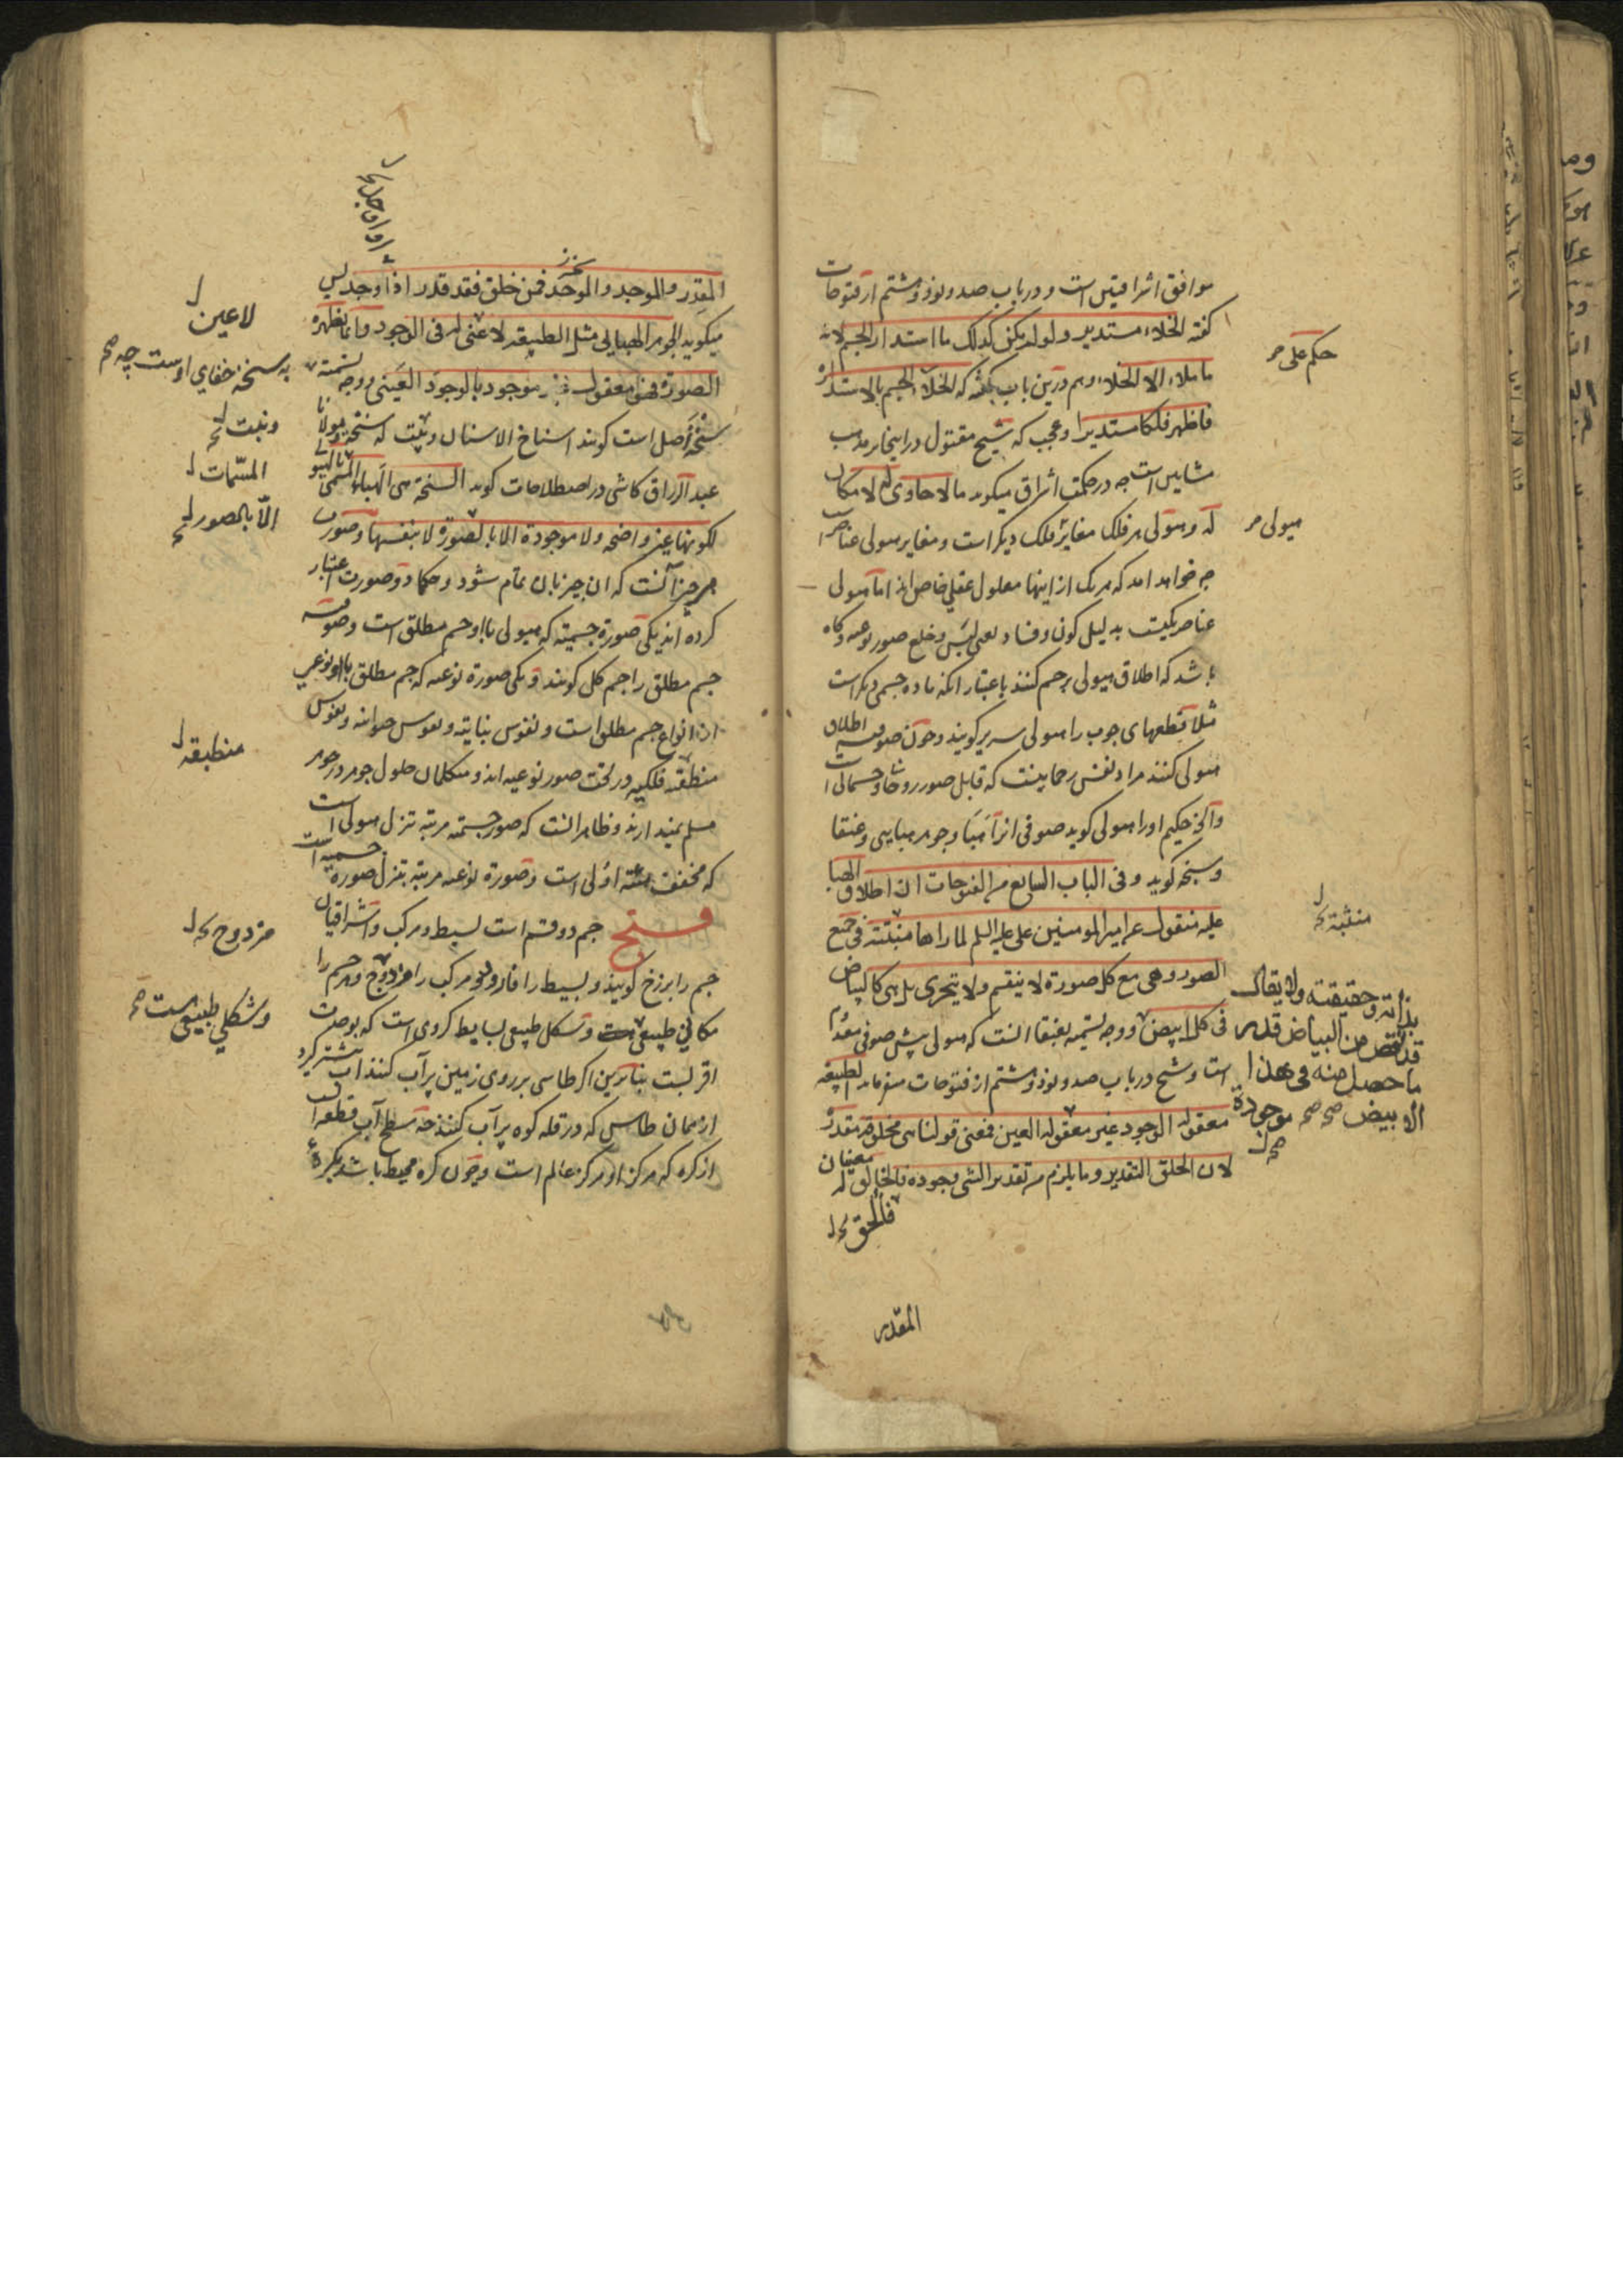 موافق اشراقیین است و در باب صد و نود و هشتم از فتوحات
گفته الخلاء مستدیر ولو لم یکن کذلک ما استدار الجسم لانه
ما ملاء الا الخلاء و هم درین باب گفته که الخلاء الجسم بالاستداره
فاظهر فلکا مستدیرا و عجب که شیخ مقتول در اینجا بر مذهب
مشایین است چه در حکمت اشراق میگوید ما لا حاوی له لا مکان
له و هیولی هر فلک مغایر فلک دیگر است و مغایر هیولی عناصر
چه خواهد آمد که هر یک از اینها معلول عقلی خاص اند اما هیولی
عناصر یکیست به دلیل کون و فساد یعنی لبس و خلع صور نوعیه و گاه
باشد که اطلاق هیولی بر جسم کنند باعتبار آنکه ماده جسمی دیگر است
مثلا قطعهای چوب را هیولی سریر گویند و چون صوفیه اطلاق
هیولی کنند مراد نفس رحمانیست که قابل صور روحانی و جسمانی است
و آنچه حکیم او را هیولی گوید صوفی انرا هبا و جوهر هبایی و عنقا
و سبخه گوید و فی الباب السابع من الفتوحات ان اطلاق الهبا
علیه منقول عن امیر المومنین علی علیه السلم لما راها منبثة فی جمیع
الصور و هی مع کل صورة لا ینقسم ولا یتجزی بل هی کالبیاض
فی کل ابیض و وجه تسمیه بعنقا آنست که هیولی پیش صوفی معدوم
است و شیخ در باب صد و نود و هشتم از فتوحات میفرماید الطبیعه
معقوله الوجود غیر معقوله العین فمعنی قولنا هی مخلوقه مقدرة
لان الخلق التقدیر و ما یلزم من تقدیر الشی وجوده فالخالق له معنیان
فالحق
المقدر
حکم علی
هیولی
منبثة
بذاته و حقیقته ولا یقال
قد نقص من البیاض قدر
ما حصل منه فی هذا
الابیض صح صح
موجودة
المقدر والموجد والموحد فمن خلق فقد قدر اذا اوجد پس
میگوید الجوهر الهبایی مثل الطبیعه لا عین له فی الوجود وانما تظهره
الصورة فهو معقول غیر موجود بالوجود العینی و وجه تسمیته
سنخ اصل است گویند اسناخ الاسنان و نیست که سنخه مولانا
عبد الرزاق کاشی در اصطلاحات گوید السبخة هی الهباء المسمی بالهیولی
لکونها غیر واضحه ولا موجودة الا بالصورة لا بنفسها و صورت
هر چیز آنست که ان چیز بان تمام شود و حکما دو صورت اعتبار
کرده اند یکی صورة جسمیه که هیولی با او جسم مطلق است و صوفیه
جسم مطلق را جسم کل گویند و یکی صورة نوعیه که جسم مطلق با او نوعی
از انواع جسم مطلق است و نفوس نباتیه و نفوس حیوانیه و نفوس
منطبقه فلکیه در تحت صور نوعیه اند و متکلمان حلول جوهر در جوهر
مسلم نمیدارند و ظاهر انست که صور جسمیه مرتبه تنزل هیولی است
که مخفف اولی است و صورة نوعیه مرتبه تنزل صورة جسمیه است
فتح جسم دو قسم است بسیط و مرکب و اشراقیان
جسم را برزخ گویند و بسیط را فارد و مرکب را مزدوج و هر جسم را
مکانی طبیعی و شکل طبیعی بسایط کروی است که بوحدت
اقربست بنابرین اگر طاسی بر روی زمین پر آب کنند آب بیشتر گیرد
از همان طاس که در قله کوه پر آب کنند چه سطح آب قطعه است
از کره که مرکز او مرکز عالم است و چون کره محیط باشد بکره
لا عین
به سبخه خفای اوست چه صح
و نیست
المسمات
الا بالصور
منطبقه
مزدوج
و شکلی طبیعی است